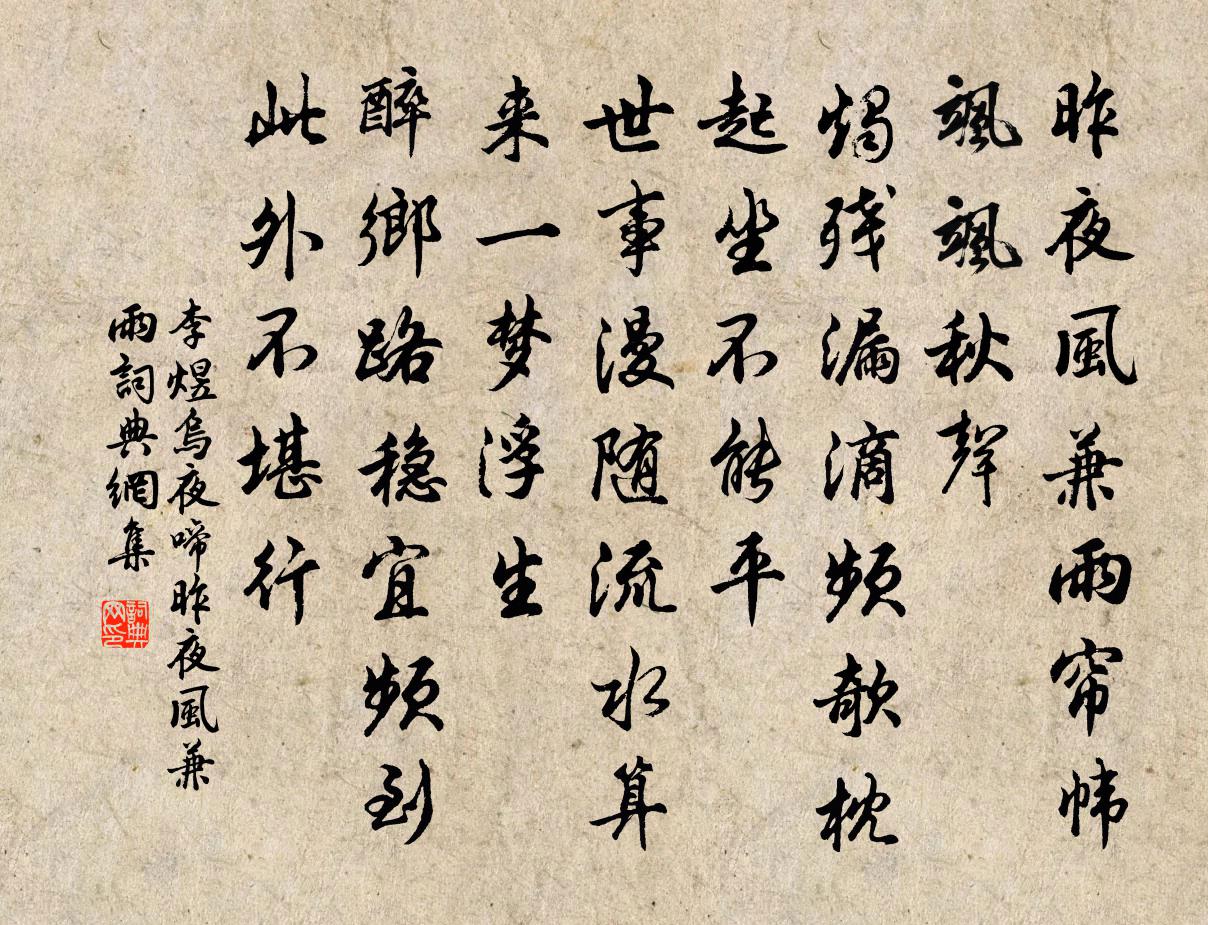 昨夜風兼雨帘帏
颯颯秋聲
燭残漏滴頻欹枕
起坐不能平
世事漫随流水算
来一梦浮生
醉鄉路稳宜頻到
此外不堪行
李煜烏夜啼昨夜風兼
雨詞典網集
詞典网印